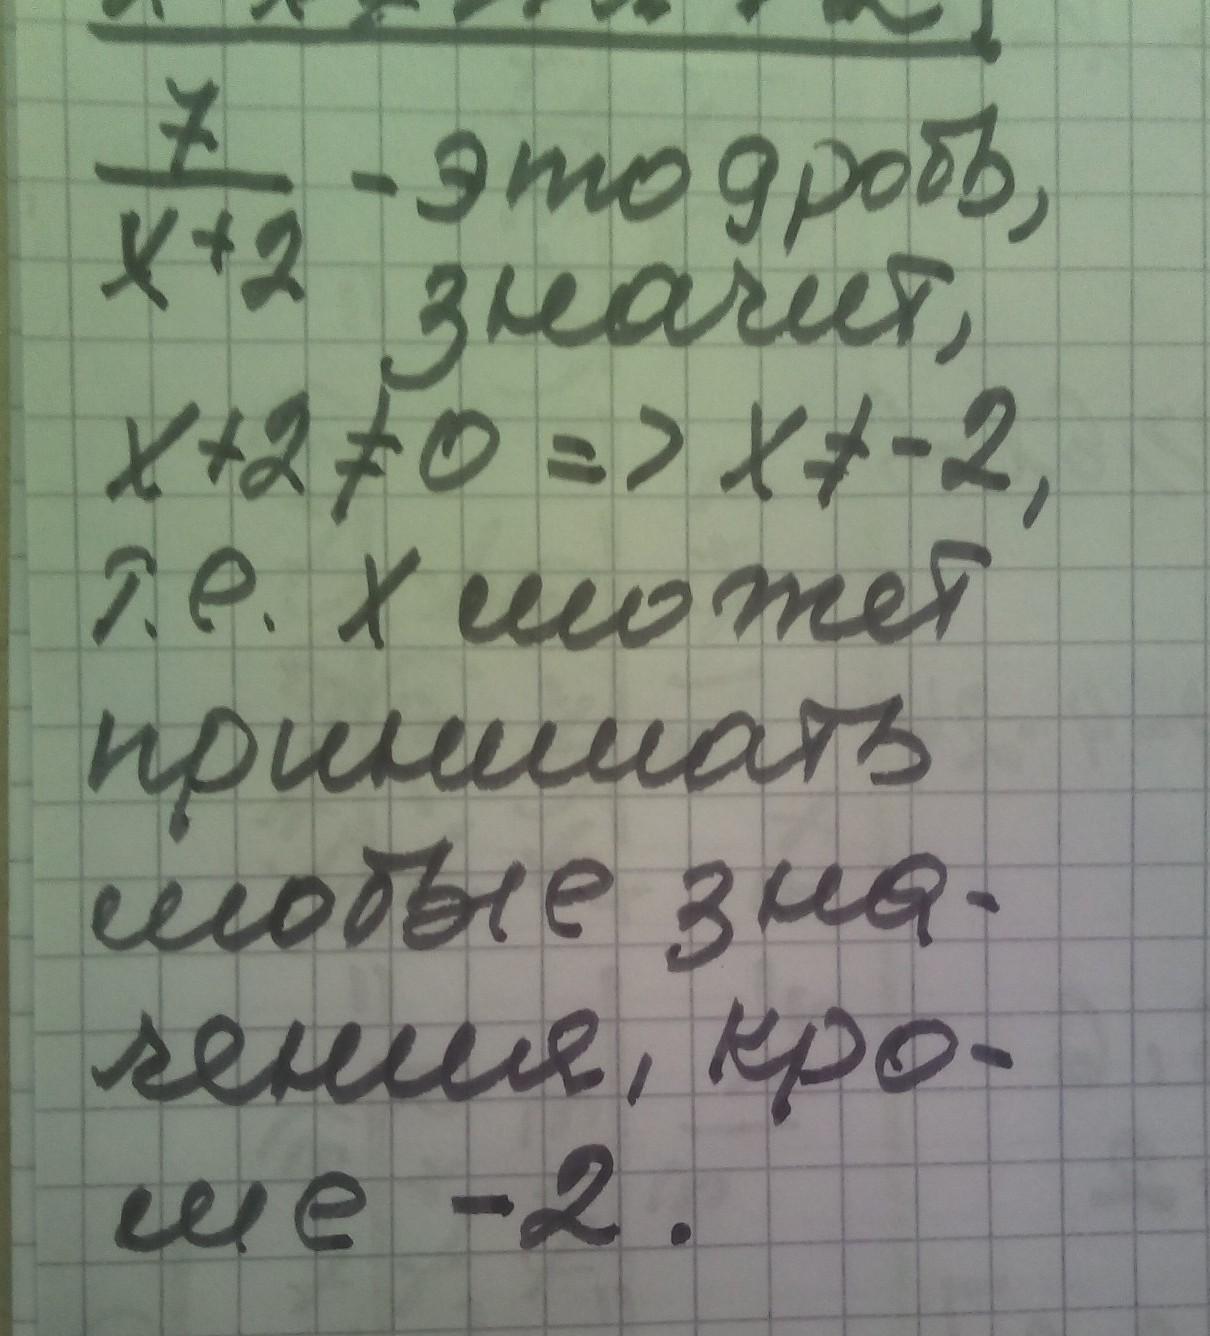 7/(x+2) - это дробь,
значит,
x+2≠0 => x≠-2,
т.е. x может
принимать
любые зна-
чения, кро-
ме -2.